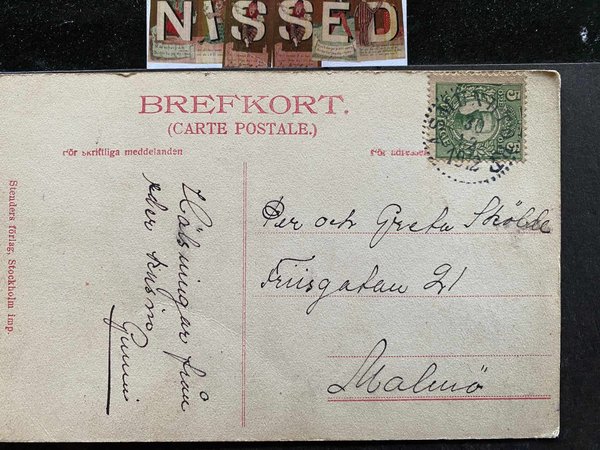 NISSED
BREFKORT.
(CARTE POSTALE.)
För skriftliga meddelanden
För adressen
5
Hälsningar från
eder kusin
Gunni
Per och Greta Sköld
Friisgatan 21
Malmö
Stenders förlag, Stockholm imp.